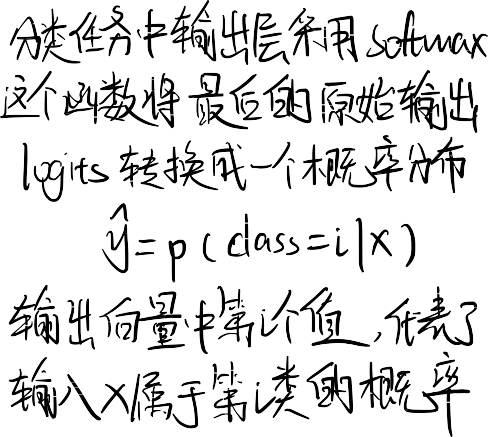 分类任务中输出层采用 softmax
这个函数将最后的原始输出
logits 转换成一个概率分布
ŷ = p ( class = i | x )
输出向量中第i个值,代表了
输入x属于第i类的概率